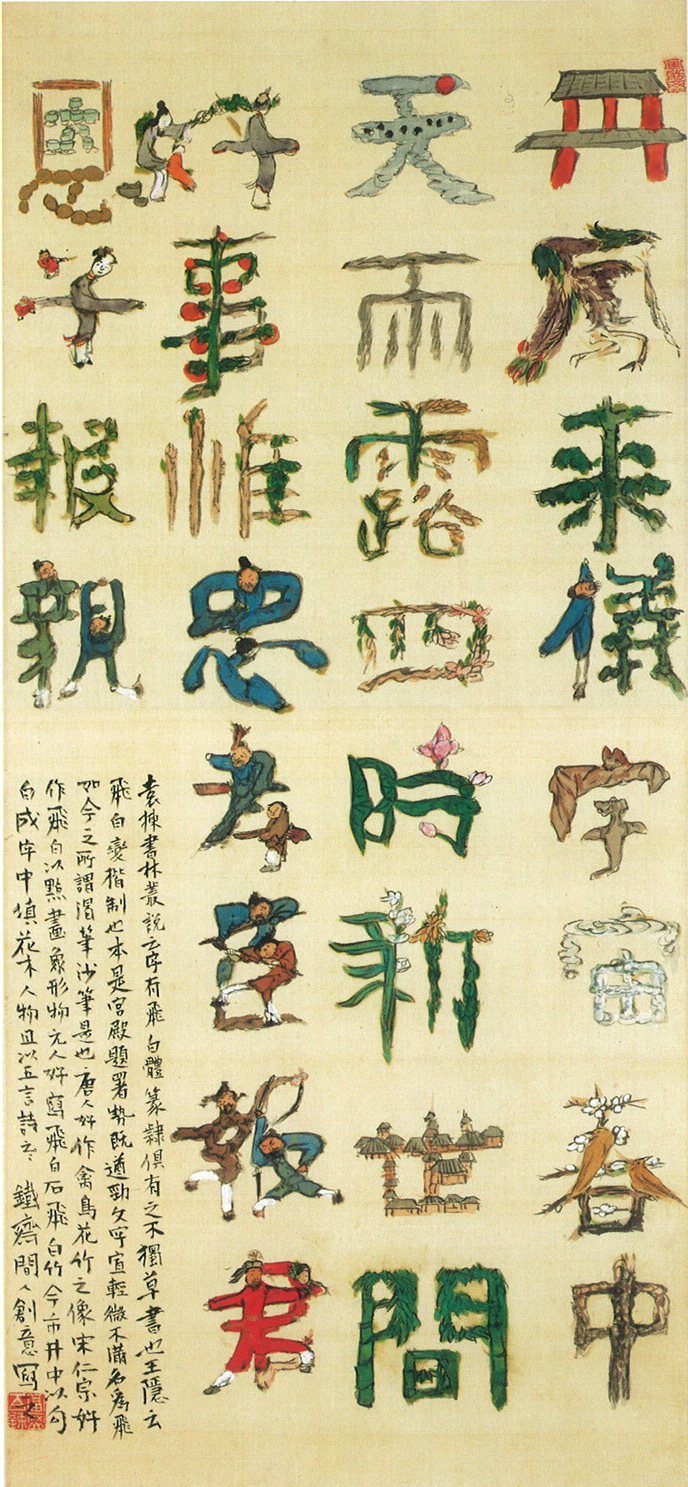 丹鳳来儀宇宙春中
天雨露四時新世間
好事惟忠孝臣報君
恩子報親
袁棟書林叢說云字有飛白體篆隸俱有之不獨草書也王隱云
飛白變楷制也本是宮殿題署勢既遒勁文字宜輕微不滿名為飛
如今之所謂渴筆沙筆是也唐人好作禽鳥花竹之像宋仁宗好
作飛白以點畫象形物元人好寫飛白石飛白竹今市井中以勾
白成字中填花木人物且以五言詩之鐵齋間人創意寫之